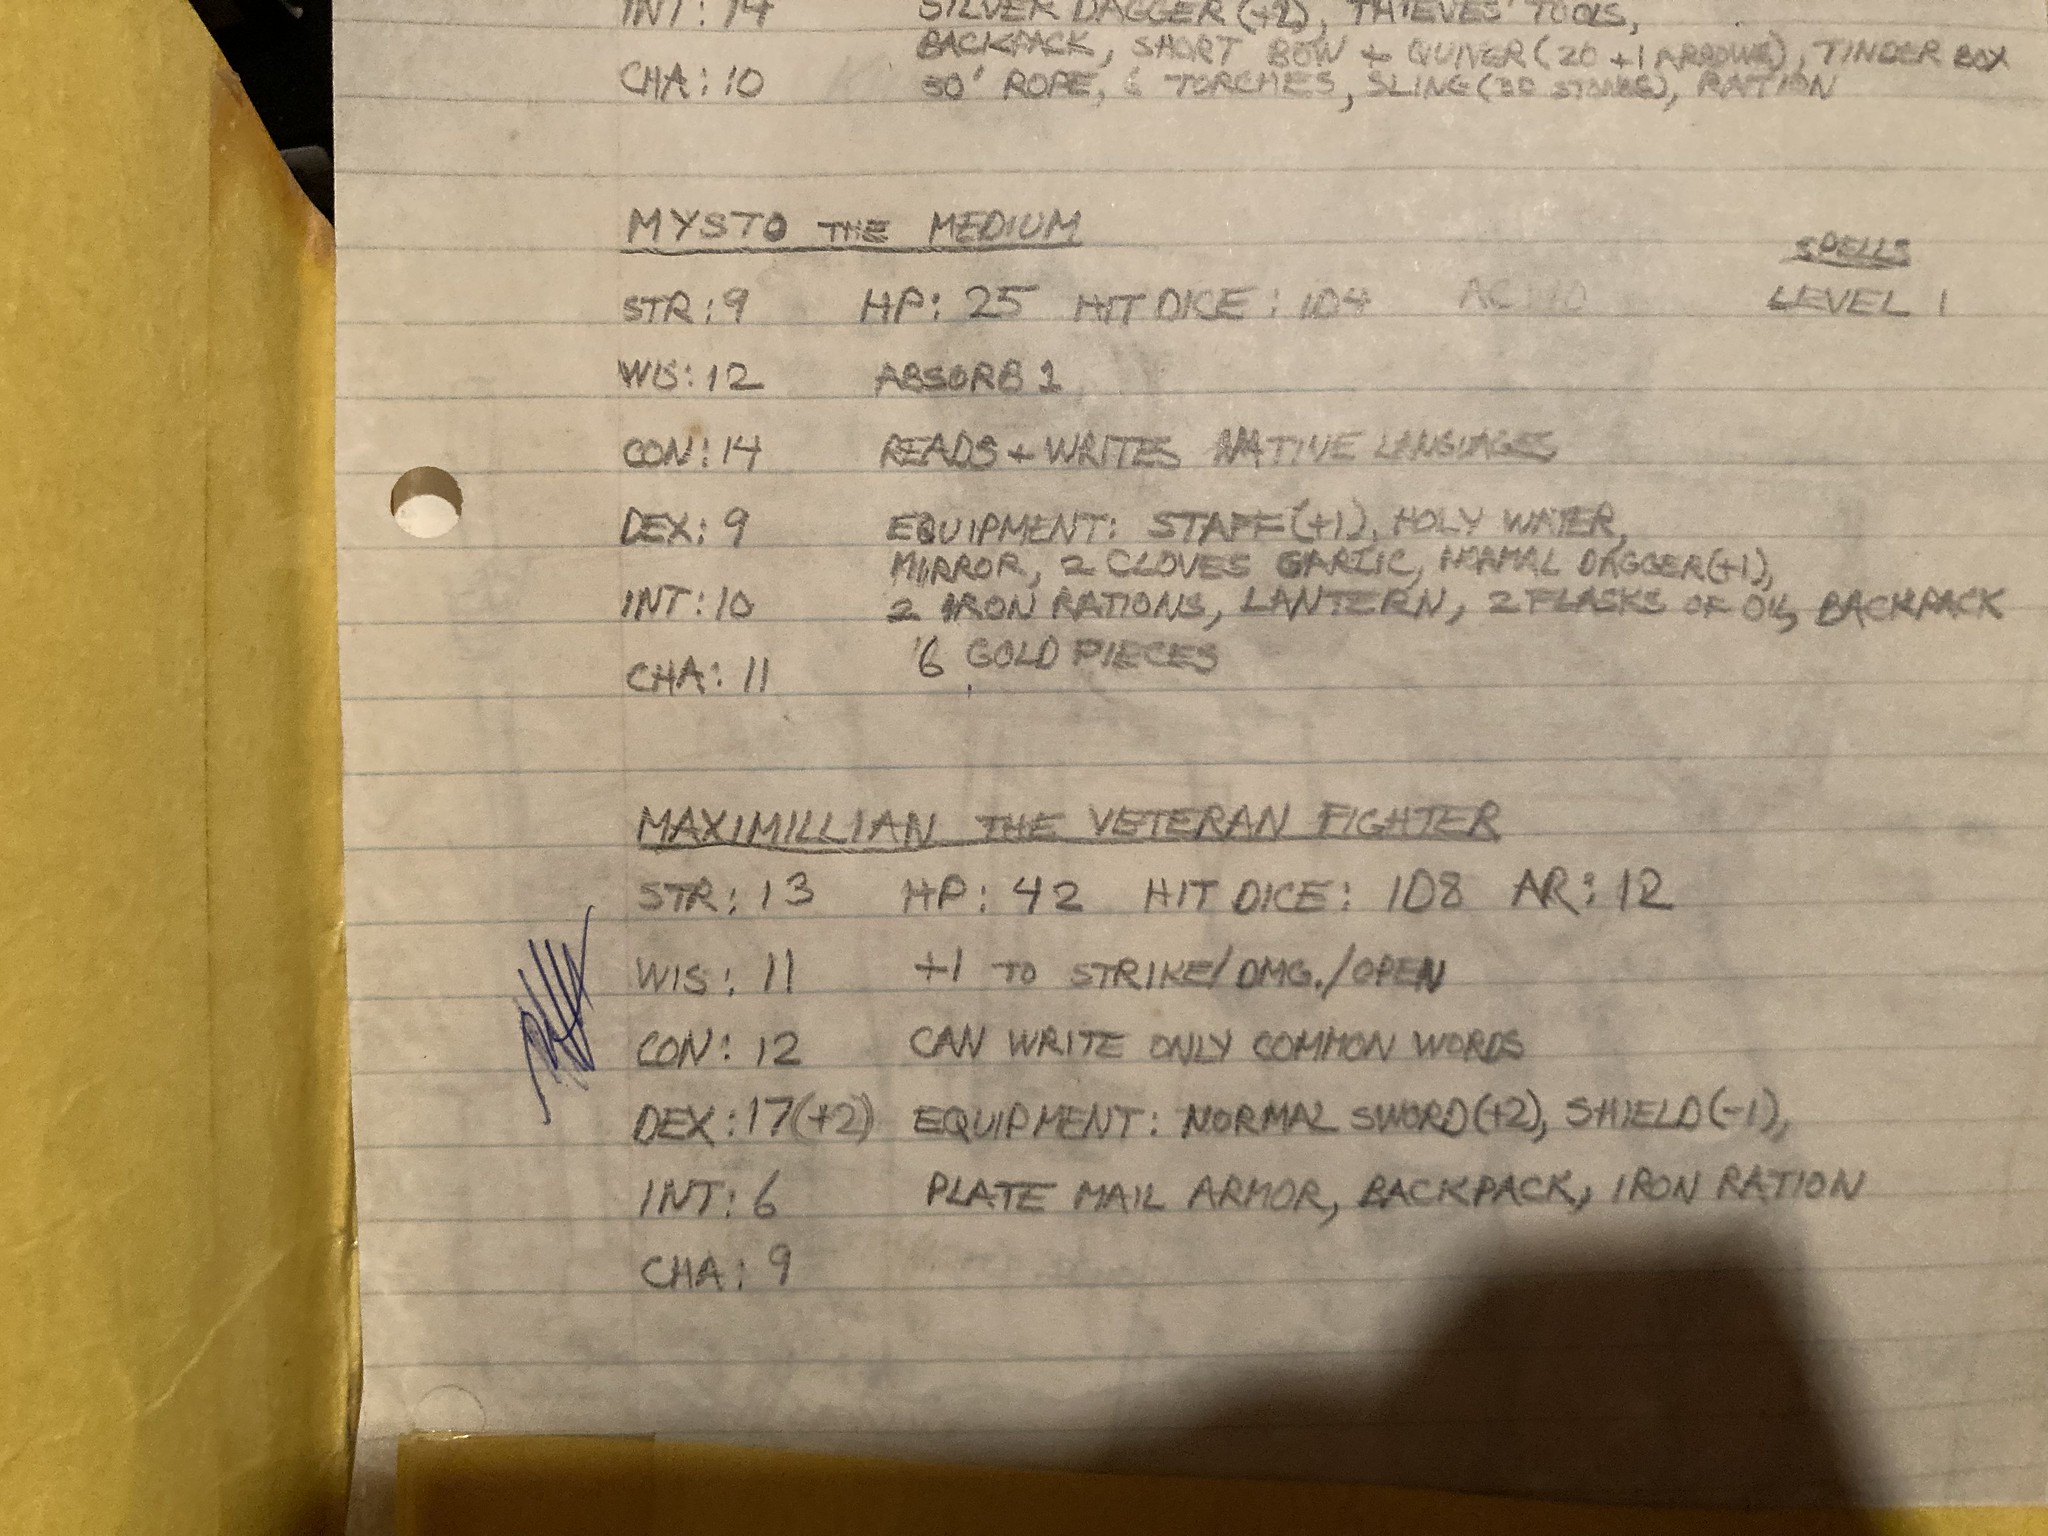 INT: 14 SILVER DAGGER (+2), THIEVES' TOOLS,
BACKPACK, SHORT BOW + QUIVER (20 +1 ARROWS), TINDER BOX
CHA: 10 50' ROPE, 6 TORCHES, SLING (30 STONES), RATION
MYSTO THE MEDIUM
SPELLS
STR: 9 HP: 25 HIT DICE: 1D4 LEVEL 1
WIS: 12 ABSORB 1
CON: 14 READS + WRITES NATIVE LANGUAGES
DEX: 9 EQUIPMENT: STAFF (+1), HOLY WATER,
MIRROR, 2 CLOVES GARLIC, NORMAL DAGGER (+1),
INT: 10 2 IRON RATIONS, LANTERN, 2 FLASKS OF OIL, BACKPACK
6 GOLD PIECES
CHA: 11
MAXIMILLIAN THE VETERAN FIGHTER
STR: 13 HP: 42 HIT DICE: 1D8 AR: 12
WIS: 11 +1 TO STRIKE/DMG./OPEN
CON: 12 CAN WRITE ONLY COMMON WORDS
DEX: 17 (+2) EQUIPMENT: NORMAL SWORD (+2), SHIELD (-1),
INT: 6 PLATE MAIL ARMOR, BACKPACK, IRON RATION
CHA: 9